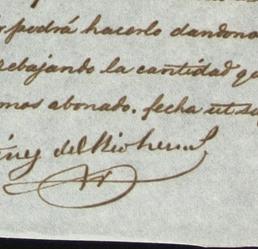 podrá hacerlo dandono
rebajando la cantidad q
mos abonado. fecha ut su
ñez del Rio herm.